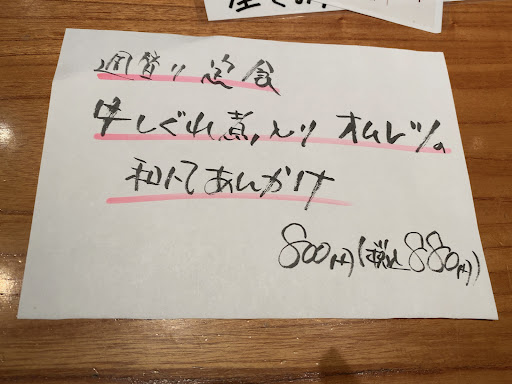 週替り定食
牛しぐれ煮入り オムレツの
和風あんかけ
800円(税込880円)